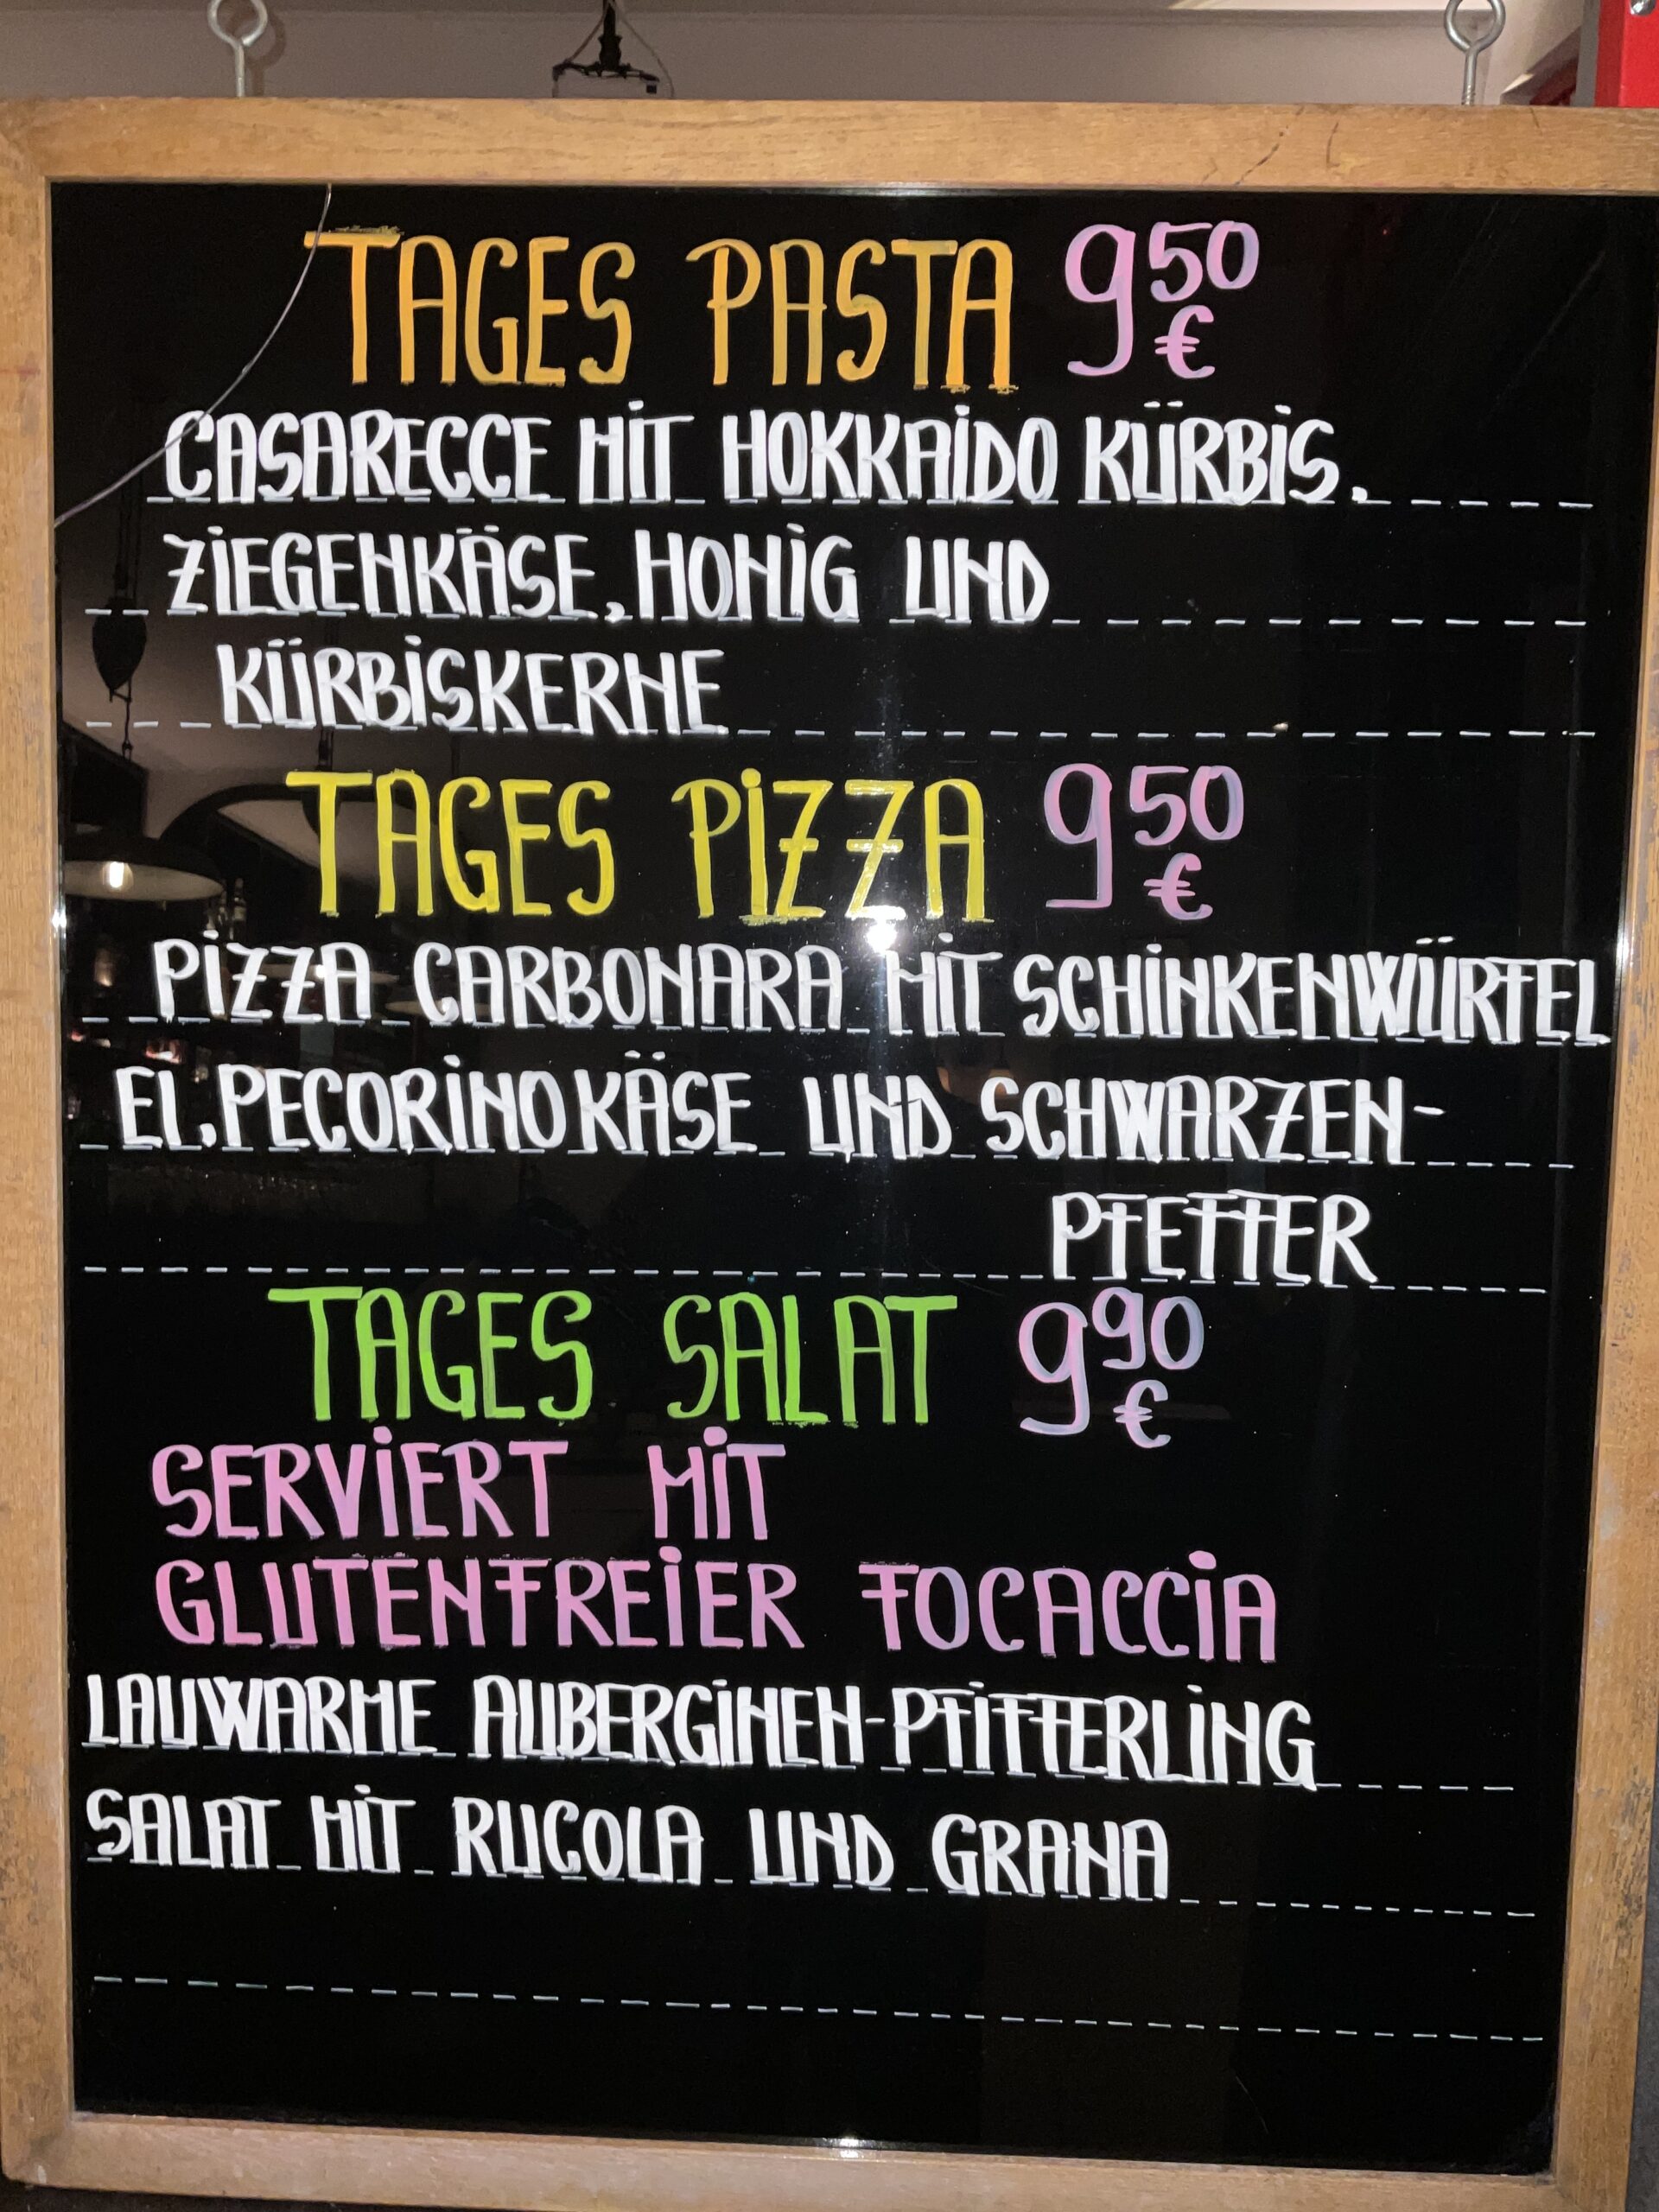 TAGES PASTA 9 50 €
CASARECCE MIT HOKKAIDO KÜRBIS.
ZIEGENKÄSE, HONIG UND
KÜRBISKERNE
TAGES PIZZA 9 50 €
PIZZA CARBONARA MIT SCHINKENWÜRFEL
EI, PECORINO KÄSE UND SCHWARZEN-
PFEFFER
TAGES SALAT 9 90 €
SERVIERT MIT
GLUTENFREIER FOCACCIA
LAUWARME AUBERGINEN-PFIFFERLING
SALAT MIT RUCOLA UND GRANA